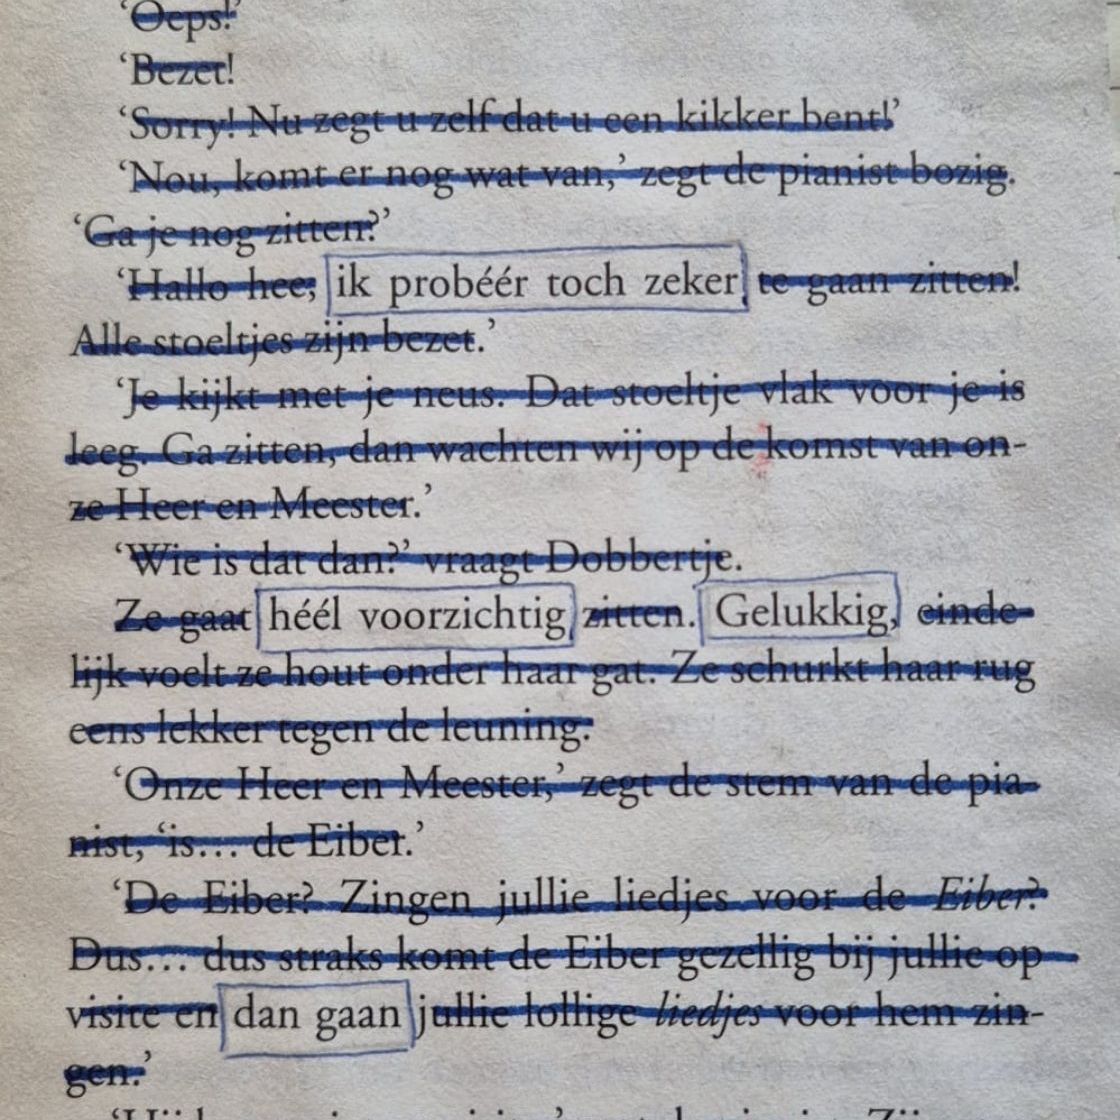 ‘Oeps!’
‘Bezet!
‘Sorry! Nu zegt u zelf dat u een kikker bent!’
‘Nou, komt er nog wat van,’ zegt de pianist bozig.
‘Ga je nog zitten?’
‘Hallo hee, ik probéér toch zeker te gaan zitten!
Alle stoeltjes zijn bezet.’
‘Je kijkt met je neus. Dat stoeltje vlak voor je is
leeg. Ga zitten, dan wachten wij op de komst van on-
ze Heer en Meester.’
‘Wie is dat dan?’ vraagt Dobbertje.
Ze gaat héél voorzichtig zitten. Gelukkig, einde-
lijk voelt ze hout onder haar gat. Ze schurkt haar rug
eens lekker tegen de leuning.
‘Onze Heer en Meester,’ zegt de stem van de pia-
nist, ‘is… de Eiber.’
‘De Eiber? Zingen jullie liedjes voor de Eiber?
Dus… dus straks komt de Eiber gezellig bij jullie op
visite en dan gaan jullie lollige liedjes voor hem zin-
gen.’